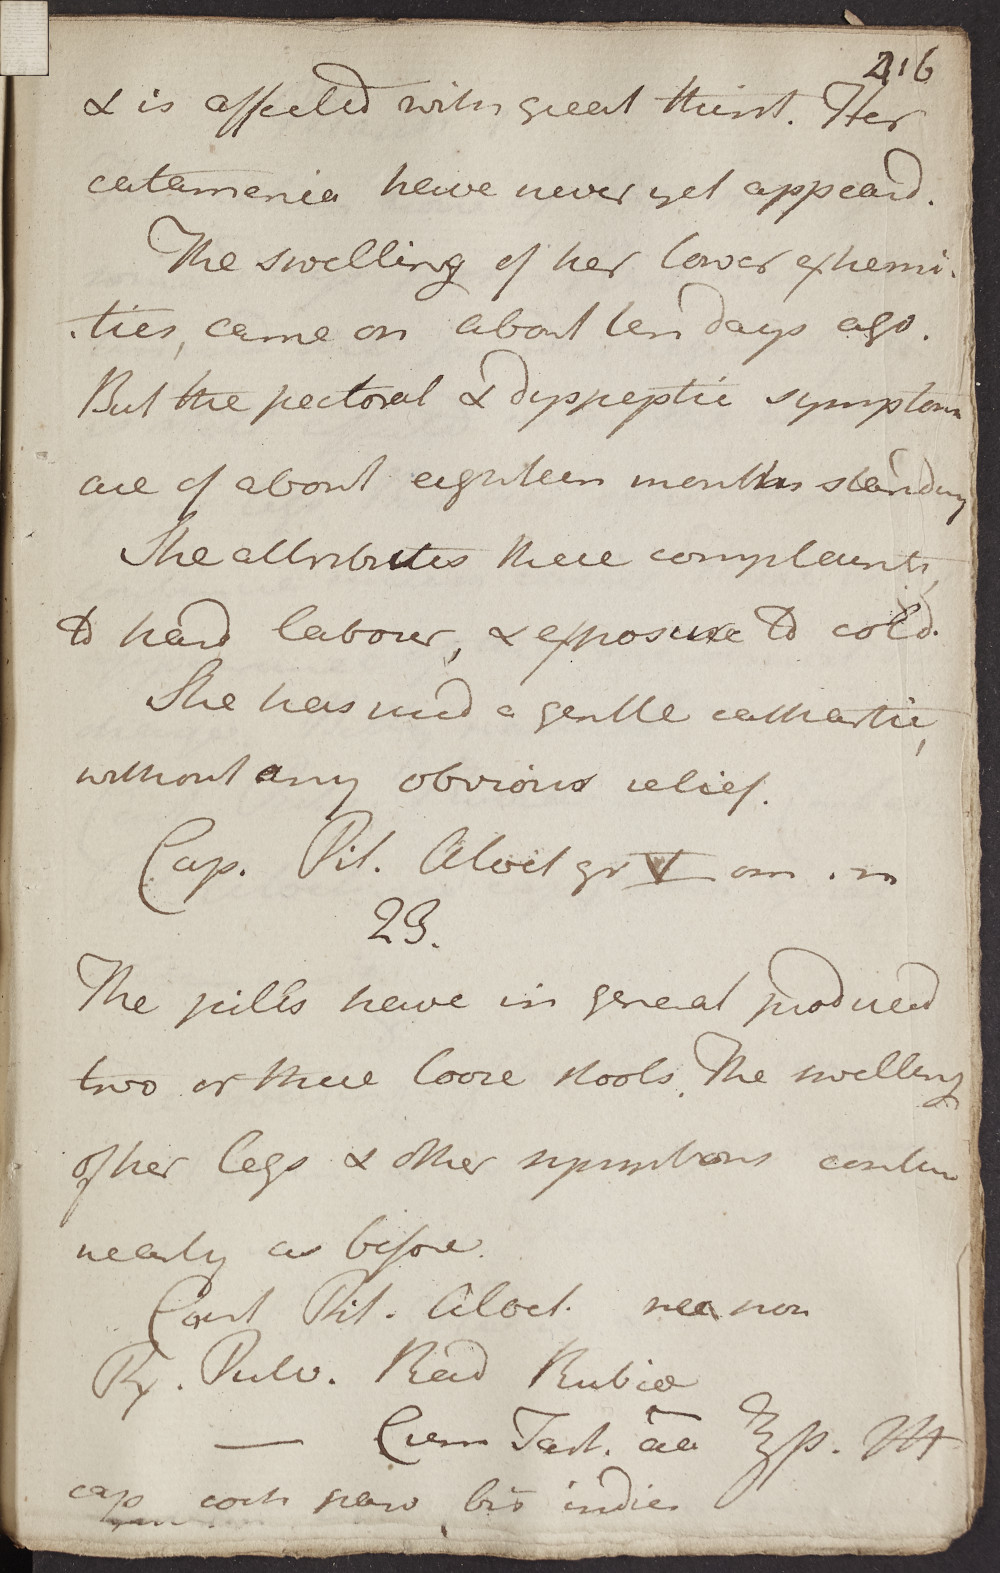 216
& is affected with great thirst. Her
catamenia have never yet appeard.
The swelling of her lower extremi-
-ties, came on about ten days ago.
But the pectoral & dyspeptic symptoms
are of about eighteen months standing
She attributes these complaints,
to hard labour, & exposure to cold.
She has used a gentle cathartic,
without any obvious relief.
Cap. Pil. Aloet gr V om . n
23.
The pills have in general produced
two or three loose stools. The swelling
of her legs & other symptoms continue
nearly as before.
Cont Pil. Aloet. nec non
Rx. Pulv. Rad Rubiæ
— Crem Tart. aa ℥ß. M
cap coch parv bis indies